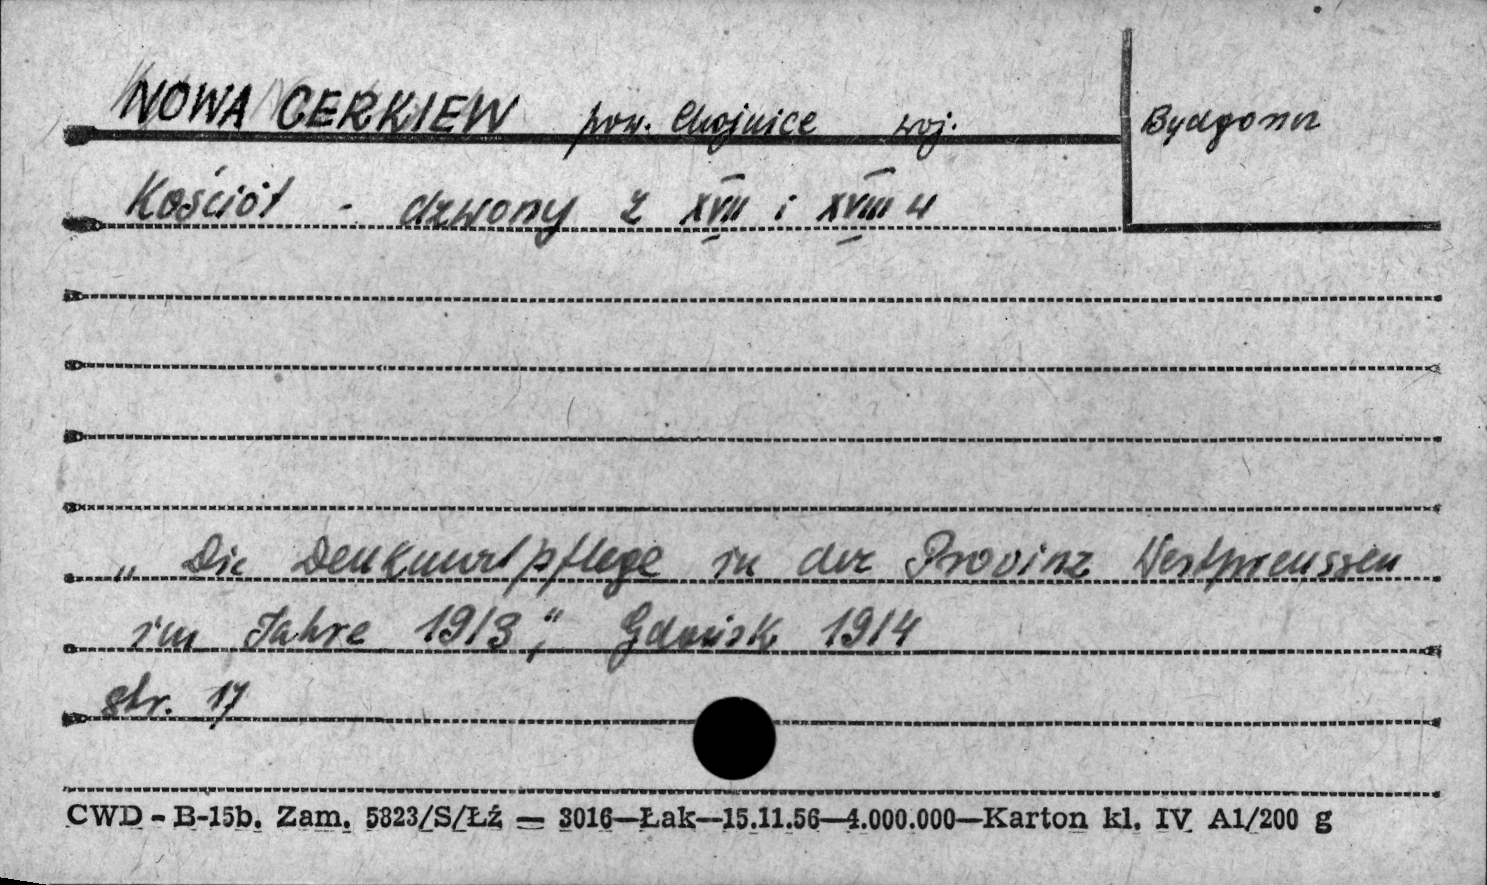 NOWA CERKIEW pow. Chojnice woj. Bydgoszcz
Kościół - dzwony z XVII i XVIII w
„Die Denkmalpflege in der Provinz Westpreussen
im Jahre 1913", Gdańsk 1914
str. 17
CWD - B-15b. Zam. 5823/S/Łź — 3016—Łak—15.11.56—4.000.000—Karton kl. IV A1/200 g